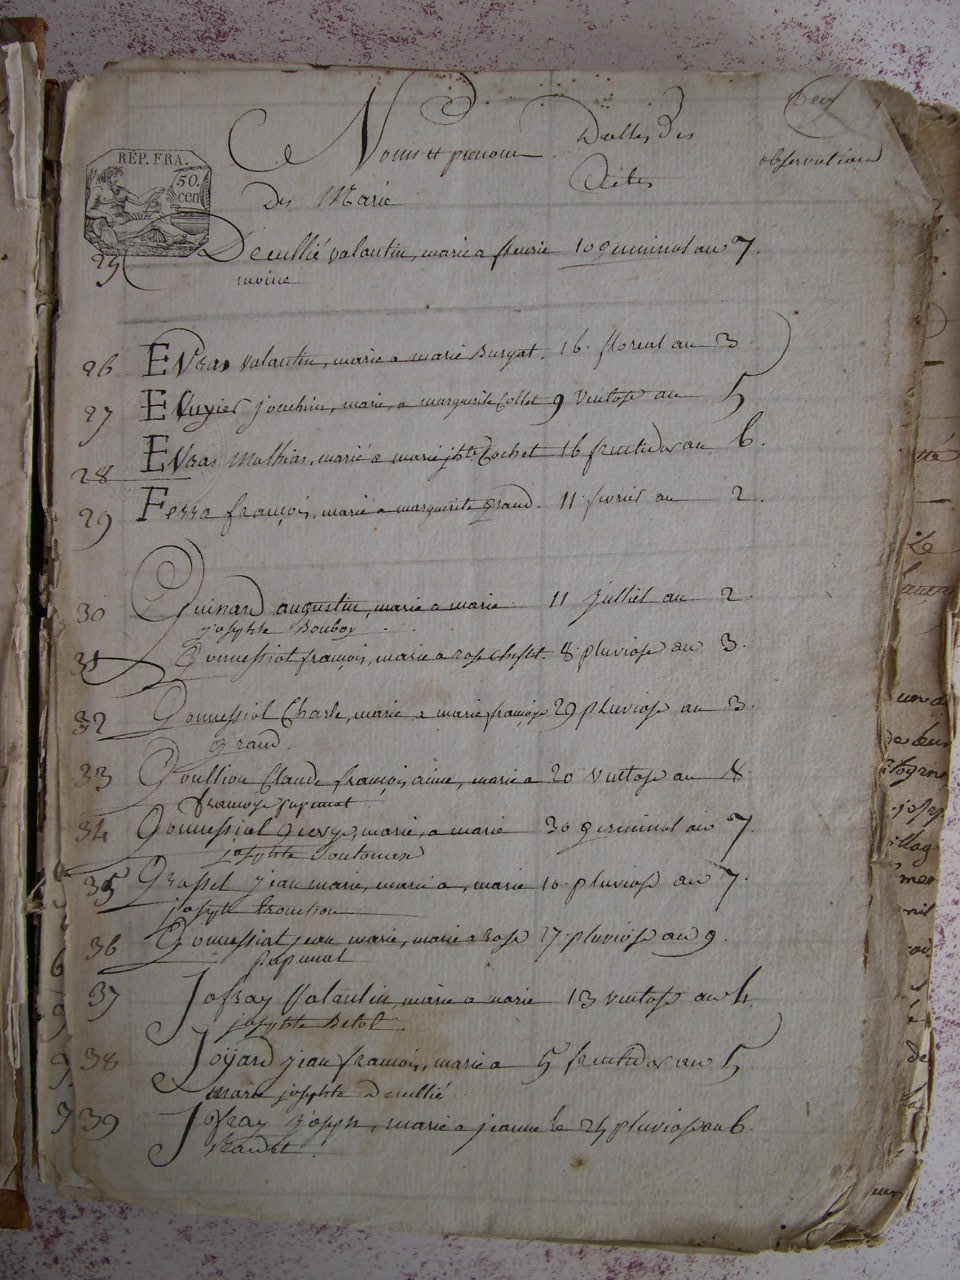 Noms et prenom Dattes des observations
Des Marié actes
REP. FRA.
50. cen
25 Decullié valantin, marie a 10 germinal an 7.
26 Evras valantin, marie a marie Buryat. 16. floreal an 3.
27 joachim, marie, a marguerite Collet 9 Ventose an 5
28 Evras Mathias, marié a marie jhte Cochet 16 fructidor an 6.
29 Ferra françois, marie a marguerite grand. 11 fevrier an 2.
30 Guinard augustin, marie a marie 11 julliet an 2.
josephte
31 Gonnessiat françois, marie a rose 8 pluviose an 3.
32 Gonnessiat Charle, marie a marie françoise 29 pluviose an 3.
grand.
33 Goullion Claude françois aine, marie a 20 Ventose an 8.
françoise papunat
34 Gonnessiat marie, a marie 30 germinal an 7.
josephte
35 Grasset jean marie, marie a, marie 10 pluviose an 7.
joseph
36 Gonnessiat jean marie, marie a rose 27 pluviose an 9.
papunat
37 Jofray Valantin, marie a marie 13 ventose an 4.
josephte
38 Joyard jean françois, marie a 5 fructidor an 5
marie josephte Decullié
39 Jofray joseph, marie a jeanne le 25 pluviose an 6.